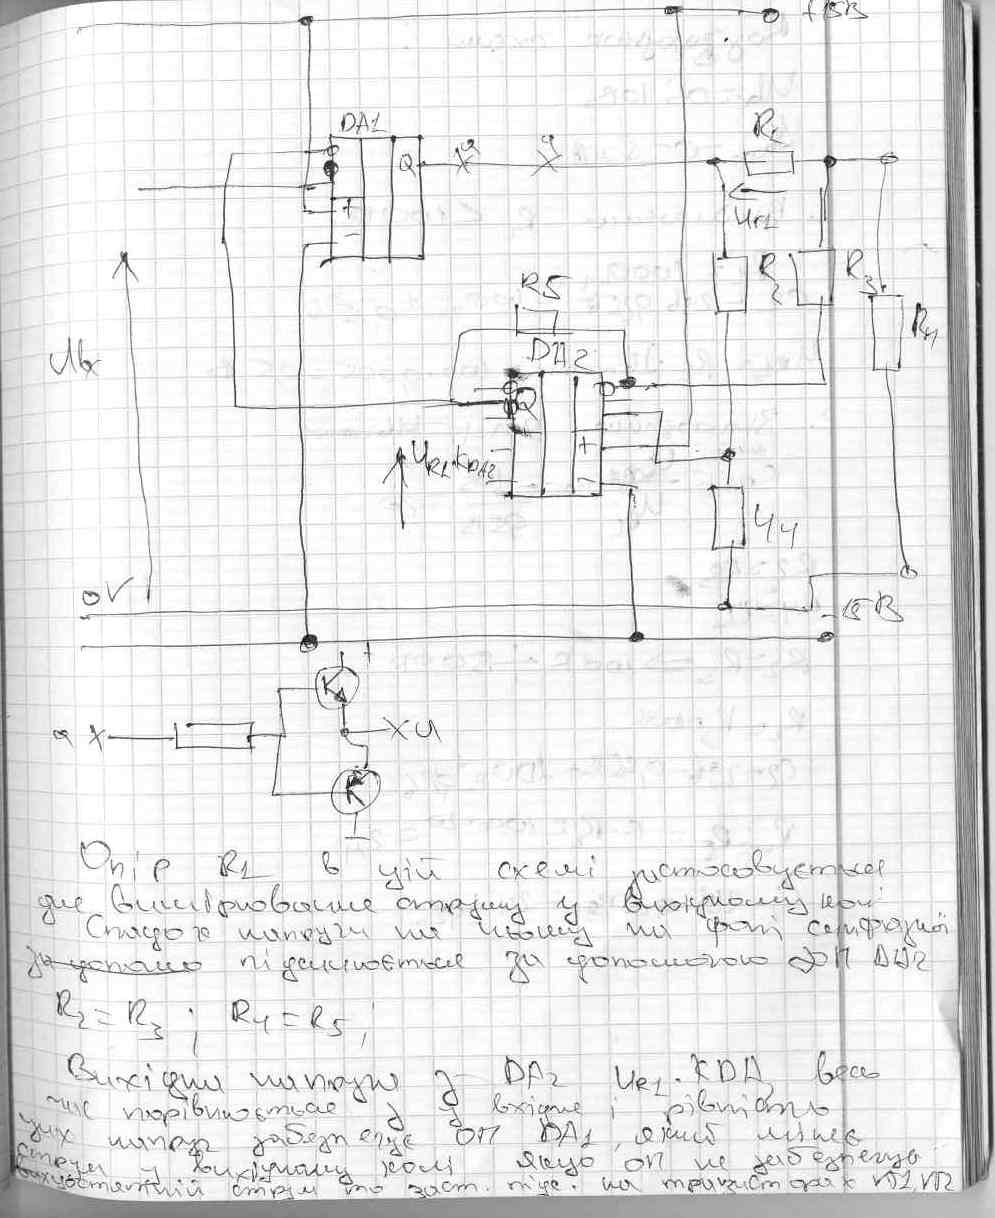 +15В
DA1
Q
а
а
R1
Ur1
R2
R3
Rн
R5
DA2
Q
+
-
+
-
Uвх
UR1·KDA2
Ч4
0V
-15В
+
а X
X а
Опір R1 в цій схемі застосовується
для вимірювання струму у вихідному колі
Спадок напруги на ньому на фоні синфазної
підсилюється за допомогою ОП DA2
R2 = R3 ; R4 = R5 ;
Вихідна напруга з DA2 UR1·KDA2 весь
час порівнюється з вхідне і рівність
цих напруг забезпечує ОП DA1, який мінює
струм у вихідному колі якщо ОП не забезпечує
струм то заст. підс. на транзисторах VT1, VT2